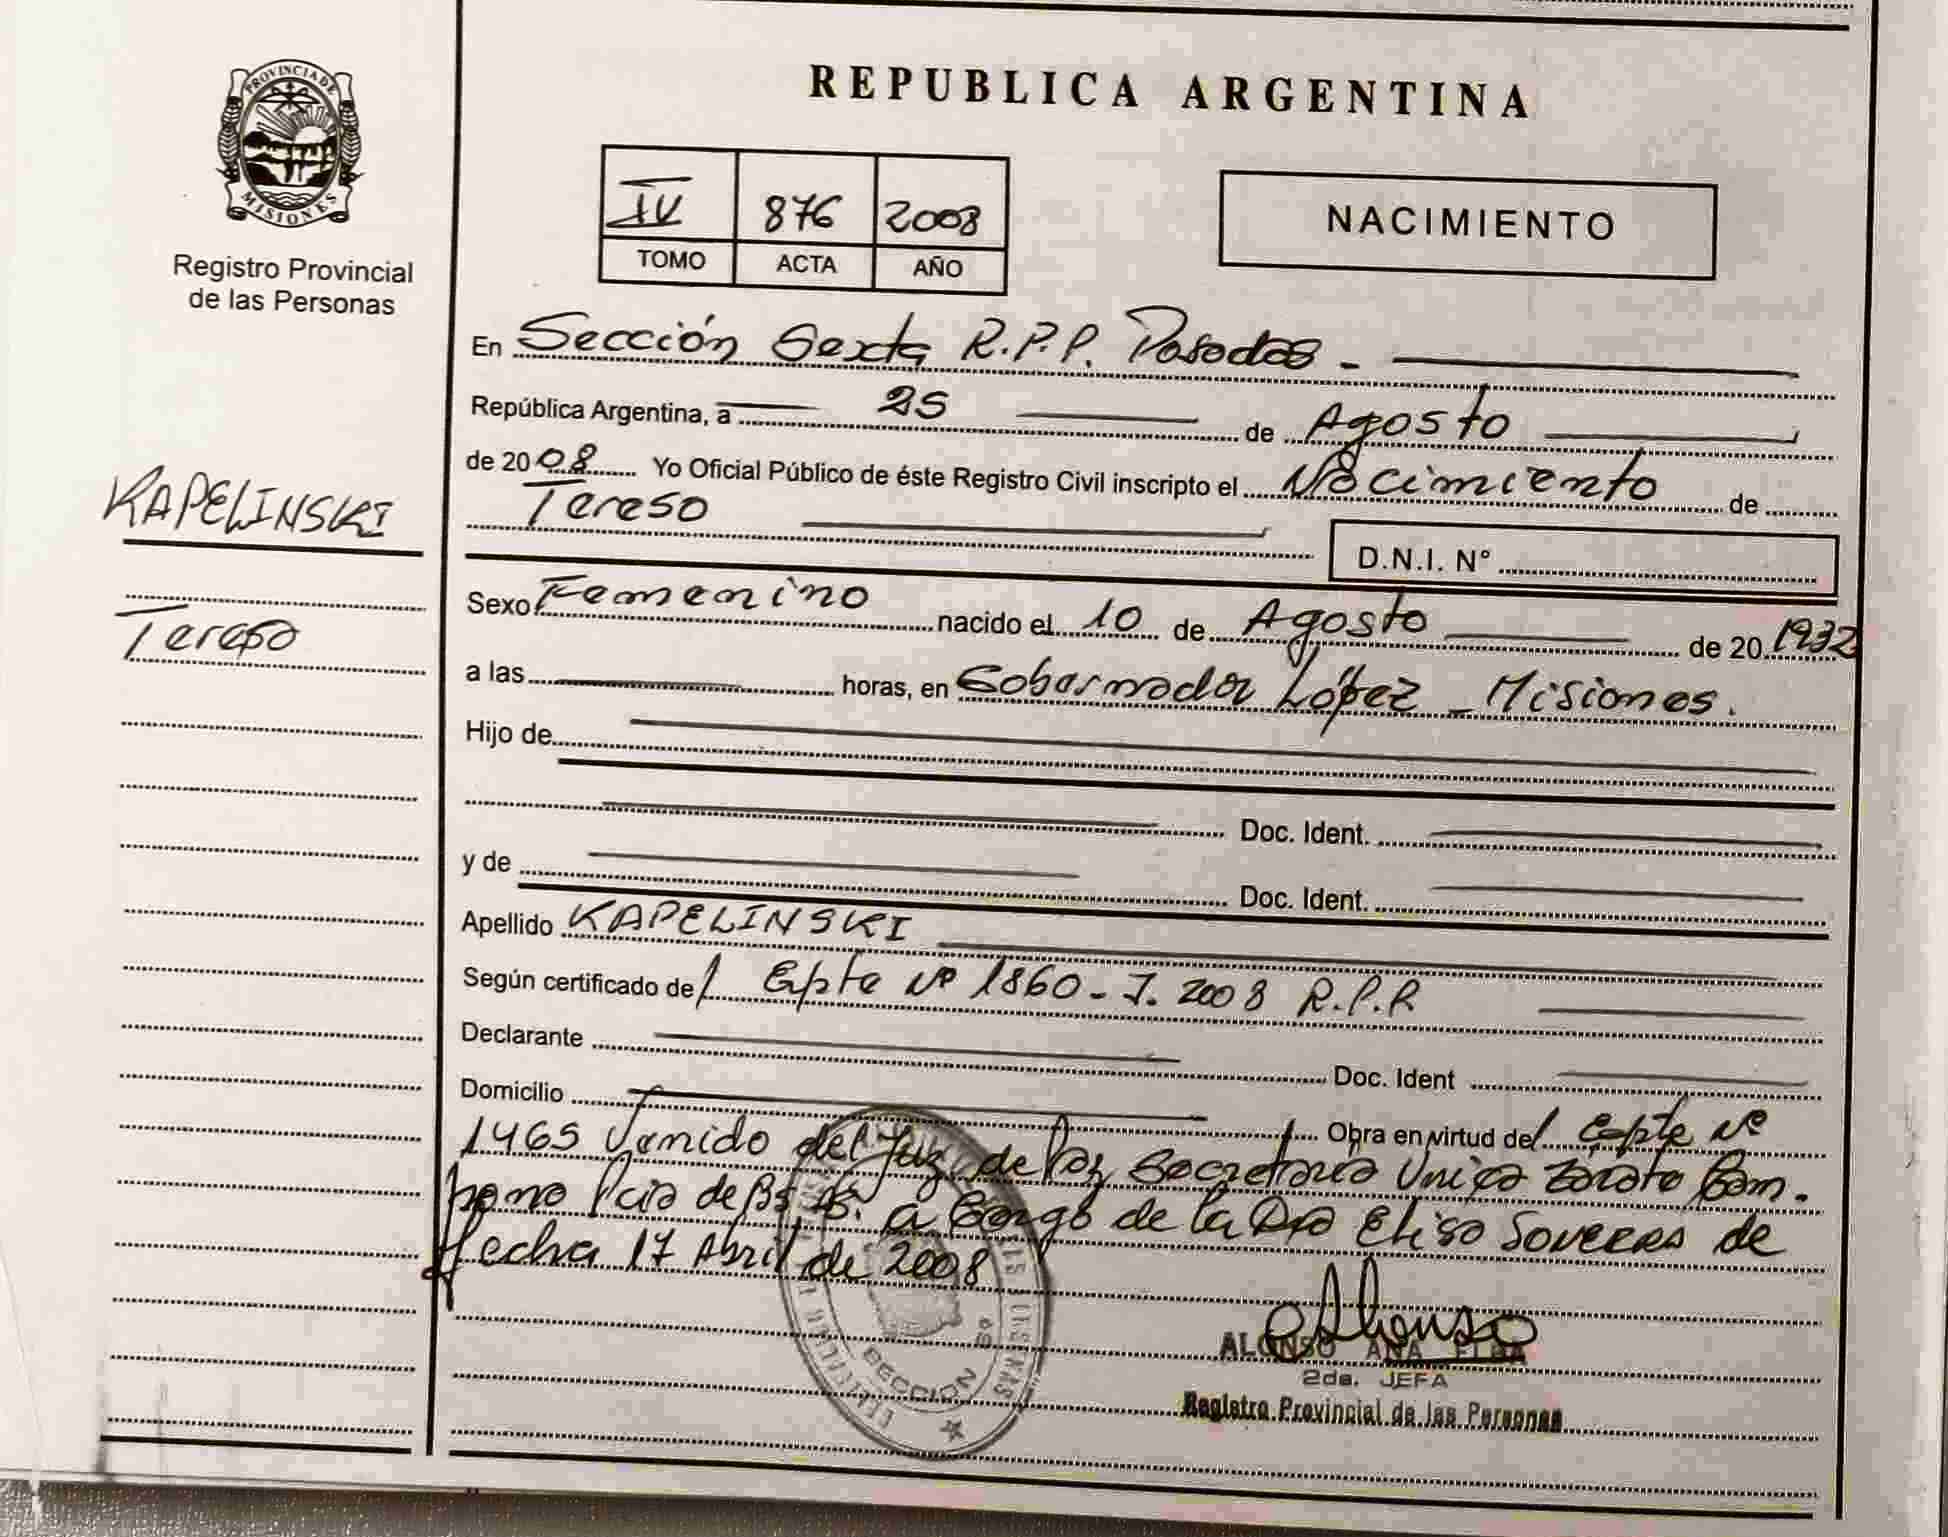 PROVINCIA DE
MISIONES
Registro Provincial
de las Personas
KAPELINSKI
Teresa
REPUBLICA ARGENTINA
IV 876 2008
TOMO ACTA AÑO
NACIMIENTO
En Sección Sexta R.P.P. Posadas -
República Argentina, a 25 de Agosto
de 2008 Yo Oficial Público de éste Registro Civil inscripto el Nacimiento de
Teresa
D.N.I. N°
Sexo Femenino nacido el 10 de Agosto de 20 1932
a las horas, en Gobernador López - Misiones.
Hijo de
Doc. Ident.
y de Doc. Ident.
Apellido KAPELINSKI
Según certificado de Expte Nº 1860 - J. 2008 R.P.P.
Declarante Doc. Ident
Domicilio Obra en virtud de Expte Nº
1465 Venido del Juz. de Paz Secretaria Unica Zarate Cam.
pana Pcia de Bs As. a Cargo de la Dra Elisa de
fecha 17 Abril de 2008
SECCION
ALONSO ANA ELBA
2da. JEFA
Registro Provincial de las Personas